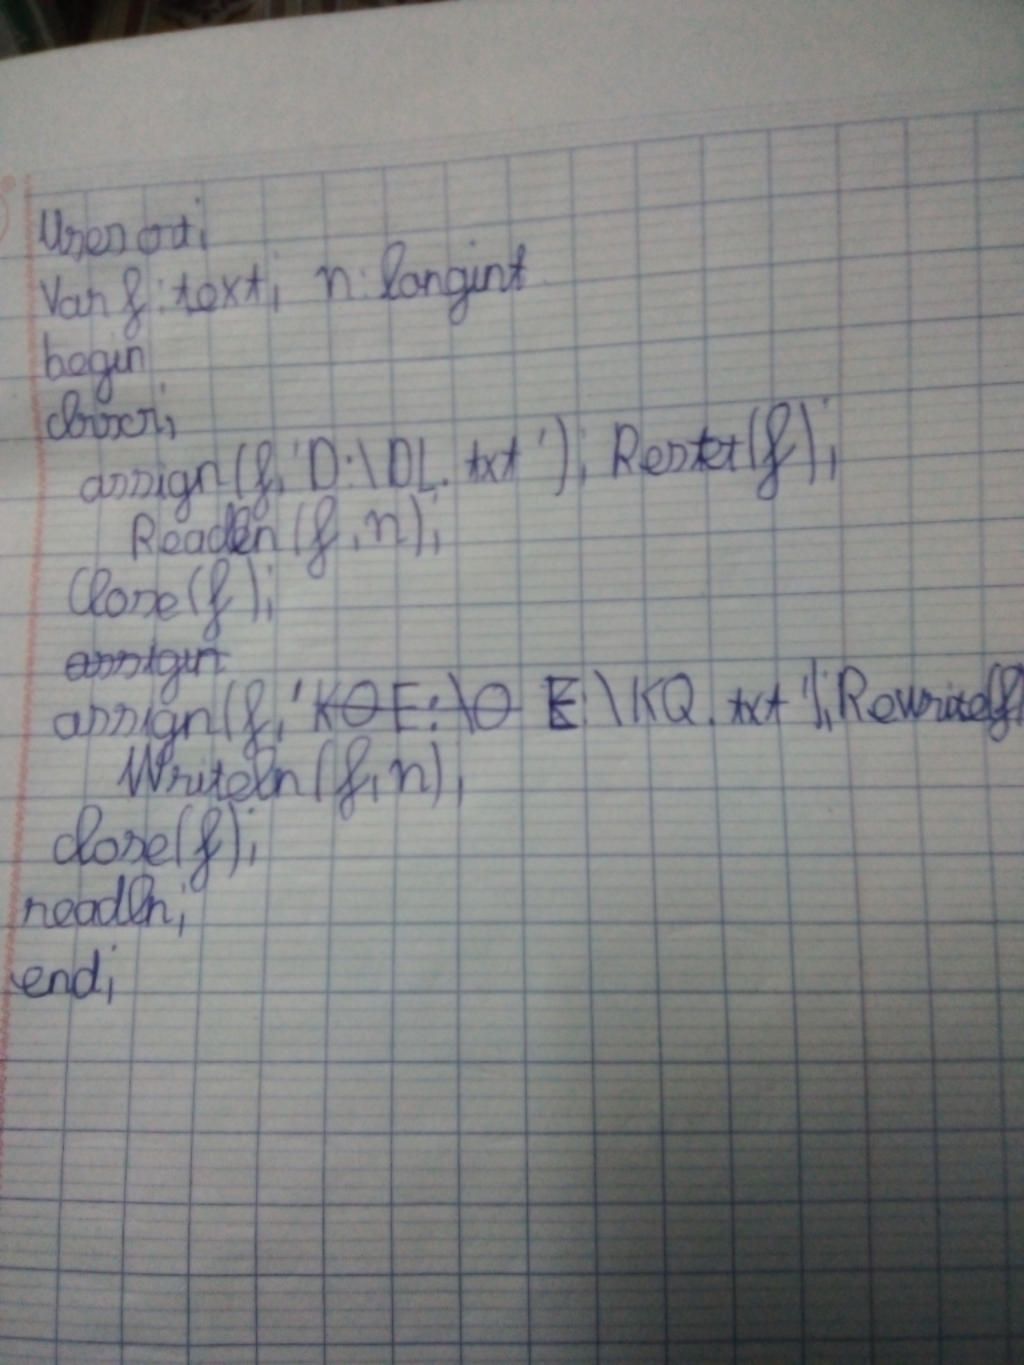 Uses crt;
Var f:text; n:longint
begin
clrscr;
assign(f,'D:\DL.txt'); Reset(f);
Readln(f,n);
Close(f);
assign
assign(f,'KQ E:\O E:\KQ.txt'); Rewrite(f)
Writeln(f,n);
close(f);
readln;
end;